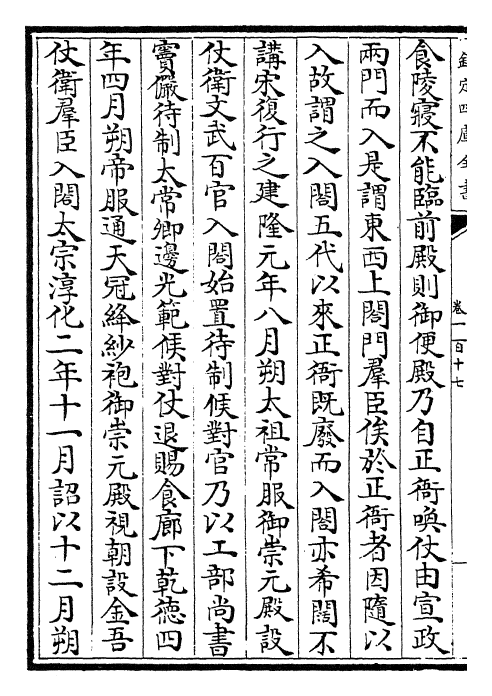 欽定四庫全書
卷一百十七
食陵寢不能臨前殿則御便殿乃自正衙喚仗由宣政
兩門而入是謂東西上閤門羣臣俟於正衙者因隨以
入故謂之入閤五代以來正衙既廢而入閤亦希闊不
講宋復行之建隆元年八月朔太祖常服御崇元殿設
仗衛文武百官入閤始置待制候對官乃以工部尚書
竇儼待制太常卿邊光範候對仗退賜食廊下乾德四
年四月朔帝服通天冠絳紗袍御崇元殿視朝設金吾
仗衛羣臣入閤太宗淳化二年十一月詔以十二月朔